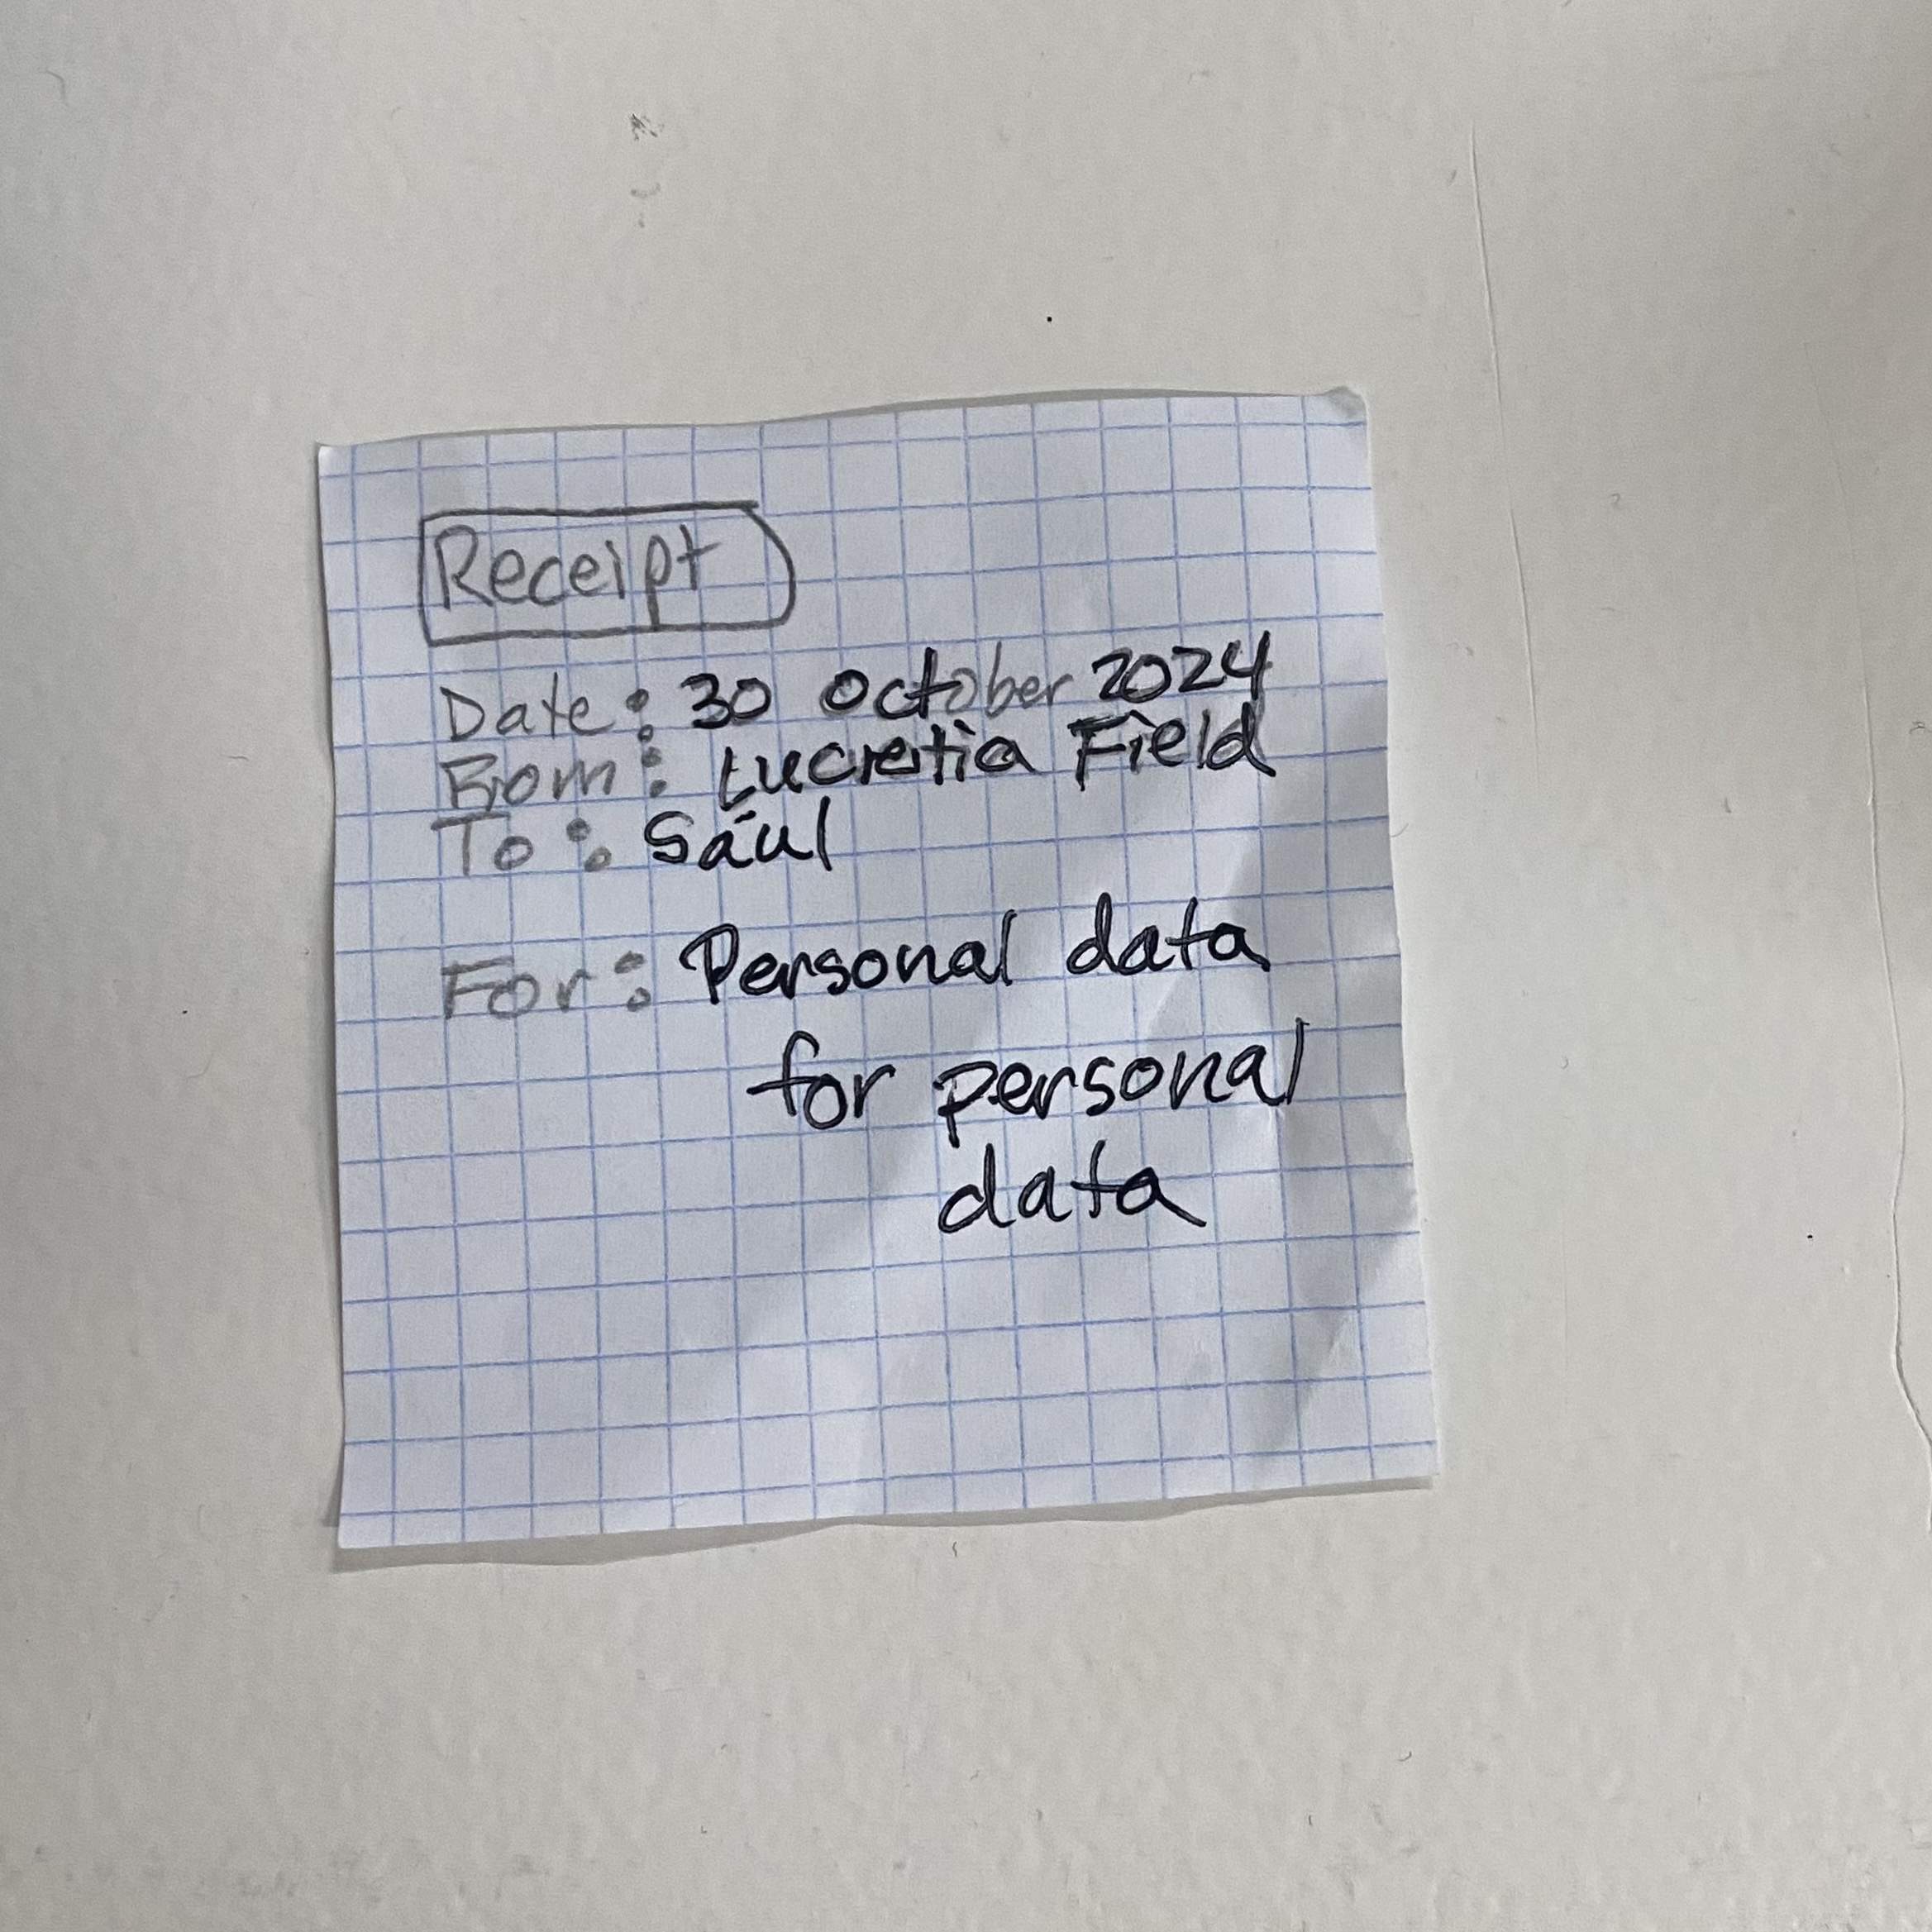 Receipt
Date: 30 October 2024
From: Lucretia Field
To: Saul
For: Personal data
for personal
data